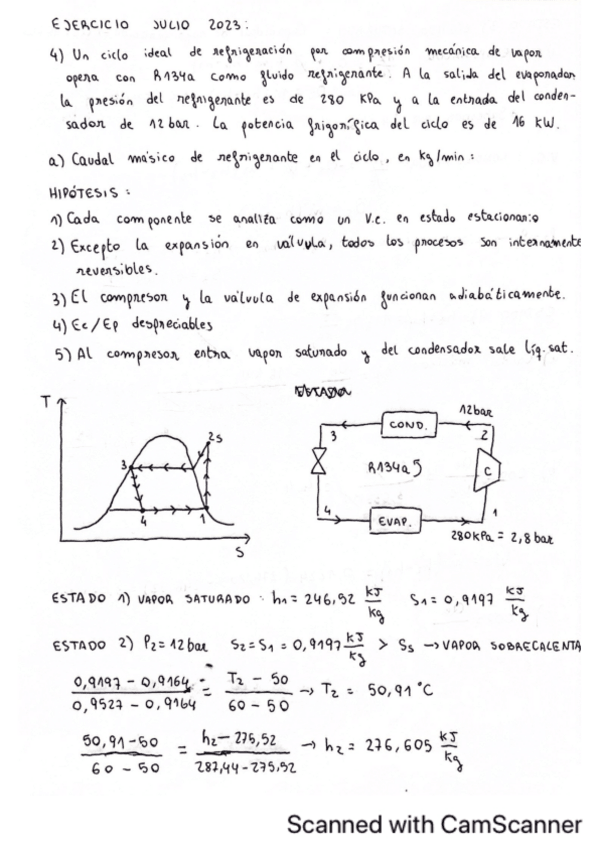 EJERCICIO JULIO 2023:
4) Un ciclo ideal de refrigeración por compresión mecánica de vapor
opera con R134a como fluido refrigerante. A la salida del evaporador
la presión del refrigerante es de 280 KPa y a la entrada del conden-
sador de 12 bar. La potencia frigorífica del ciclo es de 16 kW.
a) Caudal másico de refrigerante en el ciclo, en kg/min:
HIPÓTESIS:
1) Cada componente se analiza como un V.C. en estado estacionario
2) Excepto la expansión en válvula, todos los procesos son internamente
reversibles.
3) El compresor y la válvula de expansión funcionan adiabáticamente.
4) Ec/Ep despreciables
5) Al compresor entra vapor saturado y del condensador sale líq. sat.
T
2s
3
4
1
S
12 bar
COND.
3
2
R134a
C
4
EVAP.
1
280 KPa = 2,8 bar
ESTADO 1) VAPOR SATURADO: h1 = 246,52 kJ/kg S1 = 0,9197 kJ/kg
ESTADO 2) P2 = 12 bar S2 = S1 = 0,9197 kJ/kg > Ss → VAPOR SOBRECALENTA
0,9197 - 0,9164 / 0,9527 - 0,9164 = T2 - 50 / 60 - 50 → T2 = 50,91 °C
50,91 - 50 / 60 - 50 = h2 - 275,52 / 287,44 - 275,52 → h2 = 276,605 kJ/kg
Scanned with CamScanner